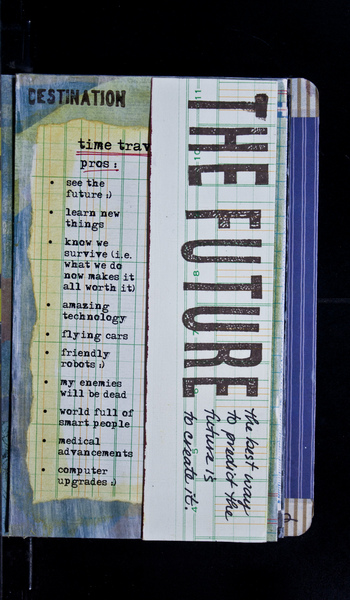 DESTINATION
time trav
pros:
• see the
future :)
• learn new
things
• know we
survive (i.e.
what we do
now makes it
all worth it)
• amazing
technology
• flying cars
• friendly
robots :)
• my enemies
will be dead
• world full of
smart people
• medical
advancements
• computer
upgrades :)
THE FUTURE
the best way
to predict the
future is
to create it.